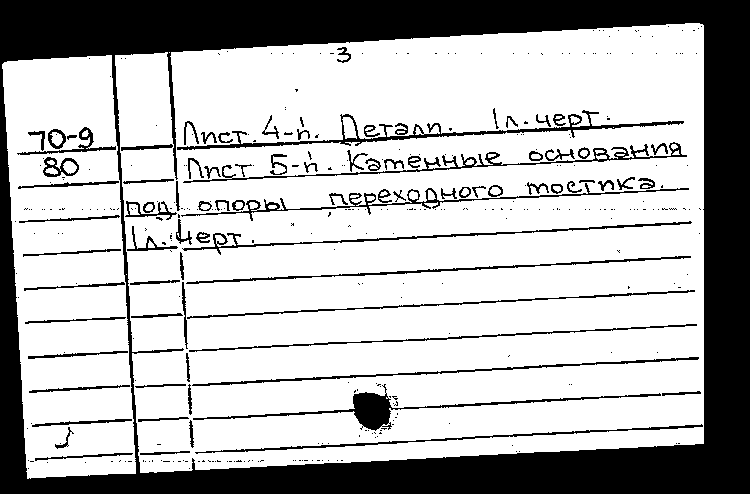 3
70-9 Лист 4-й. Детали. 1 л. черт.
80 Лист 5-й. Каменные основания
под опоры переходного мостика.
1 л. черт.